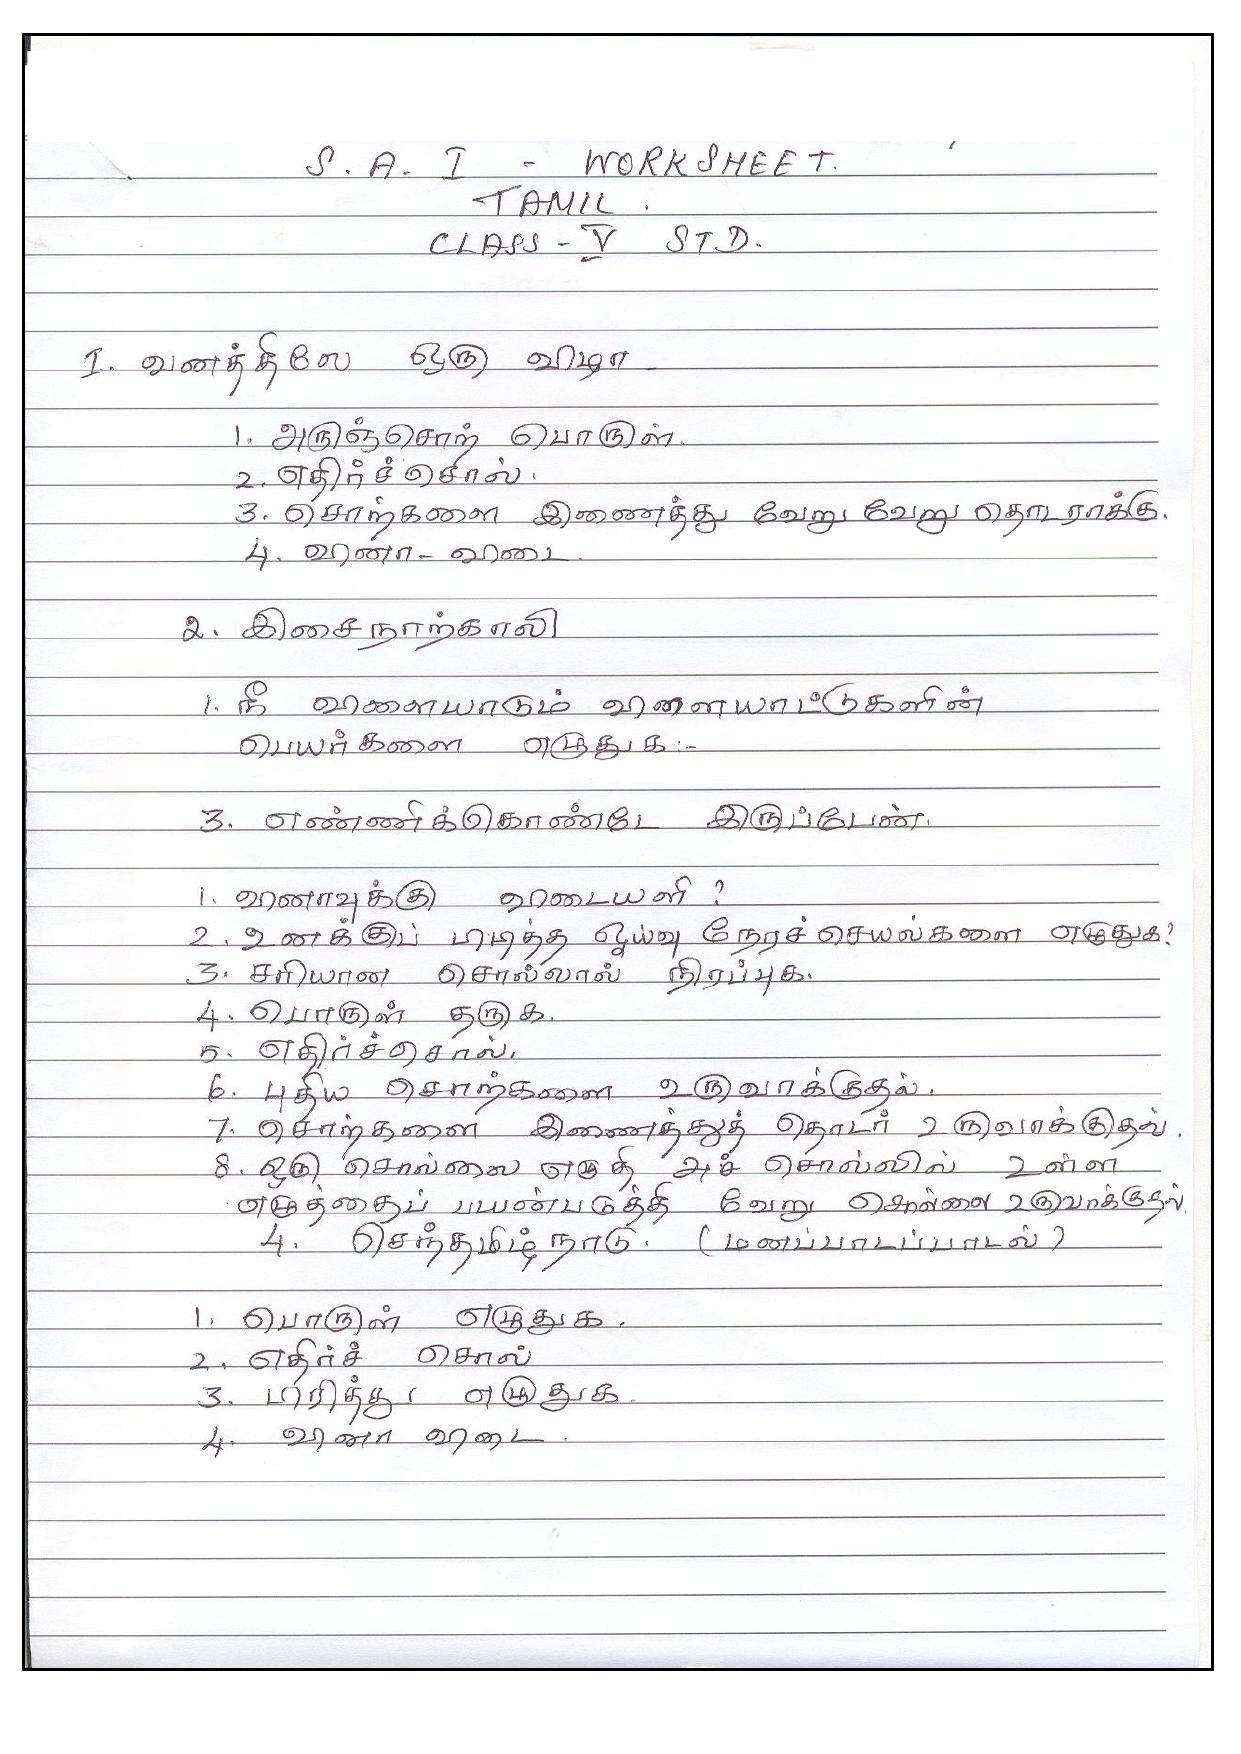 S. A. I - WORKSHEET.
TAMIL.
CLASS - V STD.
I. வனத்திலே ஒரு விழா
1. அருஞ்சொற் பொருள்.
2. எதிர்ச்சொல்.
3. சொற்களை இணைத்து வேறு வேறு தொடராக்கு.
4. வினா - விடை.
2. இசைநாற்காலி
1. நீ விளையாடும் விளையாட்டுகளின்
பெயர்களை எழுதுக :-
3. எண்ணிக்கொண்டே இருப்பேன்.
1. வினாவுக்கு விடையளி ?
2. உனக்குப் பிடித்த ஓய்வு நேரச் செயல்களை எழுதுக ?
3. சரியான சொல்லால் நிரப்புக.
4. பொருள் தருக.
5. எதிர்ச்சொல்.
6. புதிய சொற்களை உருவாக்குதல்.
7. சொற்களை இணைத்துத் தொடர் உருவாக்குதல்.
8. ஒரு சொல்லை எழுதி அச் சொல்லில் உள்ள
எழுத்தைப் பயன்படுத்தி வேறு சொல்லை உருவாக்குதல்.
4. செந்தமிழ்நாடு. (மனப்பாடப்பாடல்)
1. பொருள் எழுதுக.
2. எதிர்ச் சொல்
3. பிரித்து எழுதுக.
4. வினா விடை.